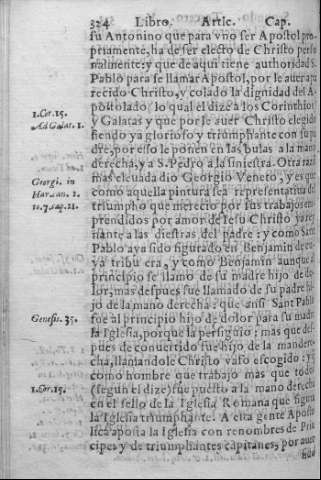 324 Libro. Artic. Cap.
su Antonino que para vno ser Apostol pro
priamente, ha de ser electo de Christo perso
nalmente: y que de aqui tiene authoridad S.
Pablo para se llamar Apostol, por le auer apa
recido Christo, y colado la dignidad del A-
postolado: lo qual el dize a los Corinthios
y Galatas y que por se auer Christo elegido
siendo ya glorioso y triumphante con su pa
dre, por esso le ponen en las bulas a la mano
derecha, y a S. Pedro a la siniestra. Otra razon
mas eleuada dio Georgio Veneto, y es que
como aquella pintura sea representatiua del
triumpho que merecio por sus trabajos em
prendidos por amor de Iesu Christo ya rey
nante a las diestras del padre: y como Sant
Pablo aya sido figurado en Benjamin de cu
ya tribu era, y como Benjamin aunque al
principio se llamo de su madre hijo de do
lor, mas despues fue llamado de su padre hi
jo de la mano derecha: que ansi Sant Pablo
fue al principio hijo de dolor para su madre
la Iglesia, porque la persiguio; mas que des-
pues de conuertido fue hijo de la mandere-
cha, llamandole Christo vaso escogido: y
como hombre que trabajo mas que todos
(segun el dize) fue puesto a la mano derecha
en el sello de la Iglesia Romana que figura
la Iglesia triumphante. A esta gente Aposto
lica aposta la Iglesia con renombres de Prin
cipes y de triumphantes capitanes, por auer
1.Cor.15.
Ad Galat. 1.
Georgi. in
Harmon. 1.
to.7.cap.21.
Genesis. 35.
1.Cor.15.